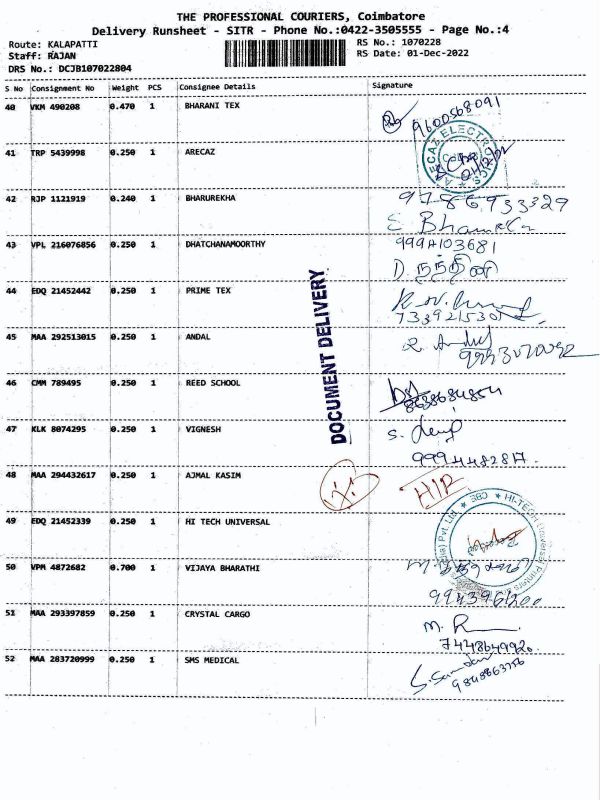 THE PROFESSIONAL COURIERS, Coimbatore
Delivery Runsheet - SITR - Phone No.:0422-3505555 - Page No.:4
Route: KALAPATTI RS No.: 1070228
Staff: RAJAN RS Date: 01-Dec-2022
DRS No.: DCJB107022804
S No Consignment No Weight PCS Consignee Details Signature
40 VKM 490208 0.470 1 BHARANI TEX 9600568091
41 TRP 5439998 0.250 1 ARECAZ
42 RJP 1121919 0.240 1 BHARUREKHA 9786933329
43 VPL 216076856 0.250 1 DHATCHANAMOORTHY 9994103681
D. நந்தினி
44 EDQ 21452442 0.250 1 PRIME TEX
7339215301
45 MAA 292513015 0.250 1 ANDAL
46 CMM 789495 0.250 1 REED SCHOOL
47 KLK 8074295 0.250 1 VIGNESH
9994482817.
48 MAA 294432617 0.250 1 AJMAL KASIM HIR
49 EDQ 21452339 0.250 1 HI TECH UNIVERSAL
50 VPM 4872682 0.700 1 VIJAYA BHARATHI
51 MAA 293397859 0.250 1 CRYSTAL CARGO M. R
52 MAA 283720999 0.250 1 SMS MEDICAL
DOCUMENT DELIVERY